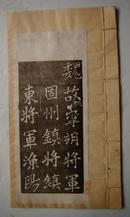 魏故寧朔將軍
固州鎮將鎮
東將軍漁陽